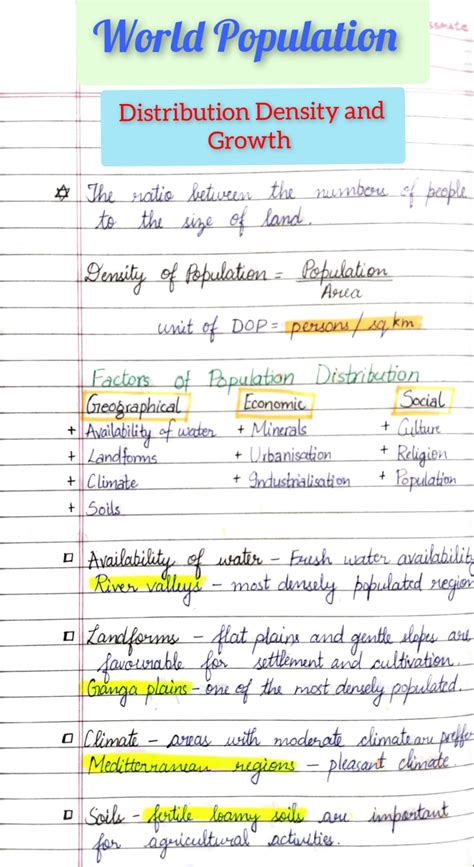 World Population
Distribution Density and
Growth
The ratio between the numbers of people
to the size of land.
Density of Population = Population
Area
unit of DOP = persons/sq.km
Factors of Population Distribution
Geographical Economic Social
+ Availability of water + Minerals + Culture
+ Landforms + Urbanisation + Religion
+ Climate + Industrialisation + Population
+ Soils
Availability of water - Fresh water availability
River valleys - most densely populated region
Landforms - flat plains and gentle slopes are
favourable for settlement and cultivation.
Ganga plains - one of the most densely populated.
Climate - areas with moderate climate are preffer
Meditterranean regions - pleasant climate.
Soils - fertile loamy soils are important
for agricultural activities.